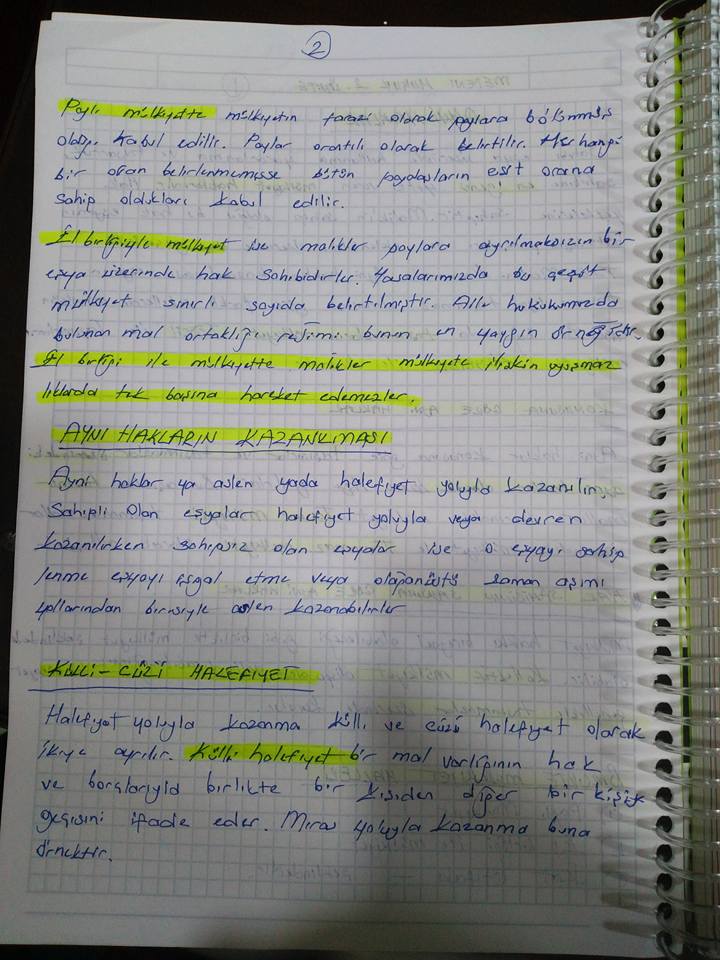 2
Paylı mülkiyette mülkiyetin farazi olarak paylara bölünmüş
olduğu kabul edilir. Paylar orantılı olarak belirtilir. Herhangi
bir oran belirlenmemişse bütün paydaşların eşit orana
sahip oldukları kabul edilir.
El birliğiyle mülkiyet ise malikler paylara ayrılmaksızın bir
eşya üzerinde hak sahibidirler. Yasalarımızda bu çeşit
mülkiyet sınırlı sayıda belirtilmiştir. Aile hukukumuzda
bulunan mal ortaklığı rejimi bunun en yaygın örneğidir.
El birliği ile mülkiyette malikler mülkiyete ilişkin uyuşmaz
lıklarda tek başına hareket edemezler.
AYNI HAKLARIN KAZANILMASI
Ayni haklar ya aslen yada halefiyet yoluyla kazanılır
Sahipli olan eşyalar halefiyet yoluyla veya devren
kazanılırken sahipsiz olan eşyalar ise o eşyayı sahip
lenme eşyayı işgal etme veya olağanüstü zaman aşımı
yollarından birisiyle aslen kazanabilirler
KÜLLİ-CÜZİ HALEFİYET
Halefiyet yoluyla kazanma külli ve cüzi halefiyet olarak
ikiye ayrılır. Külli halefiyet bir mal varlığının hak
ve borçlarıyla birlikte bir kişiden diğer bir kişiye
geçişini ifade eder. Miras yoluyla kazanma buna
örnektir.